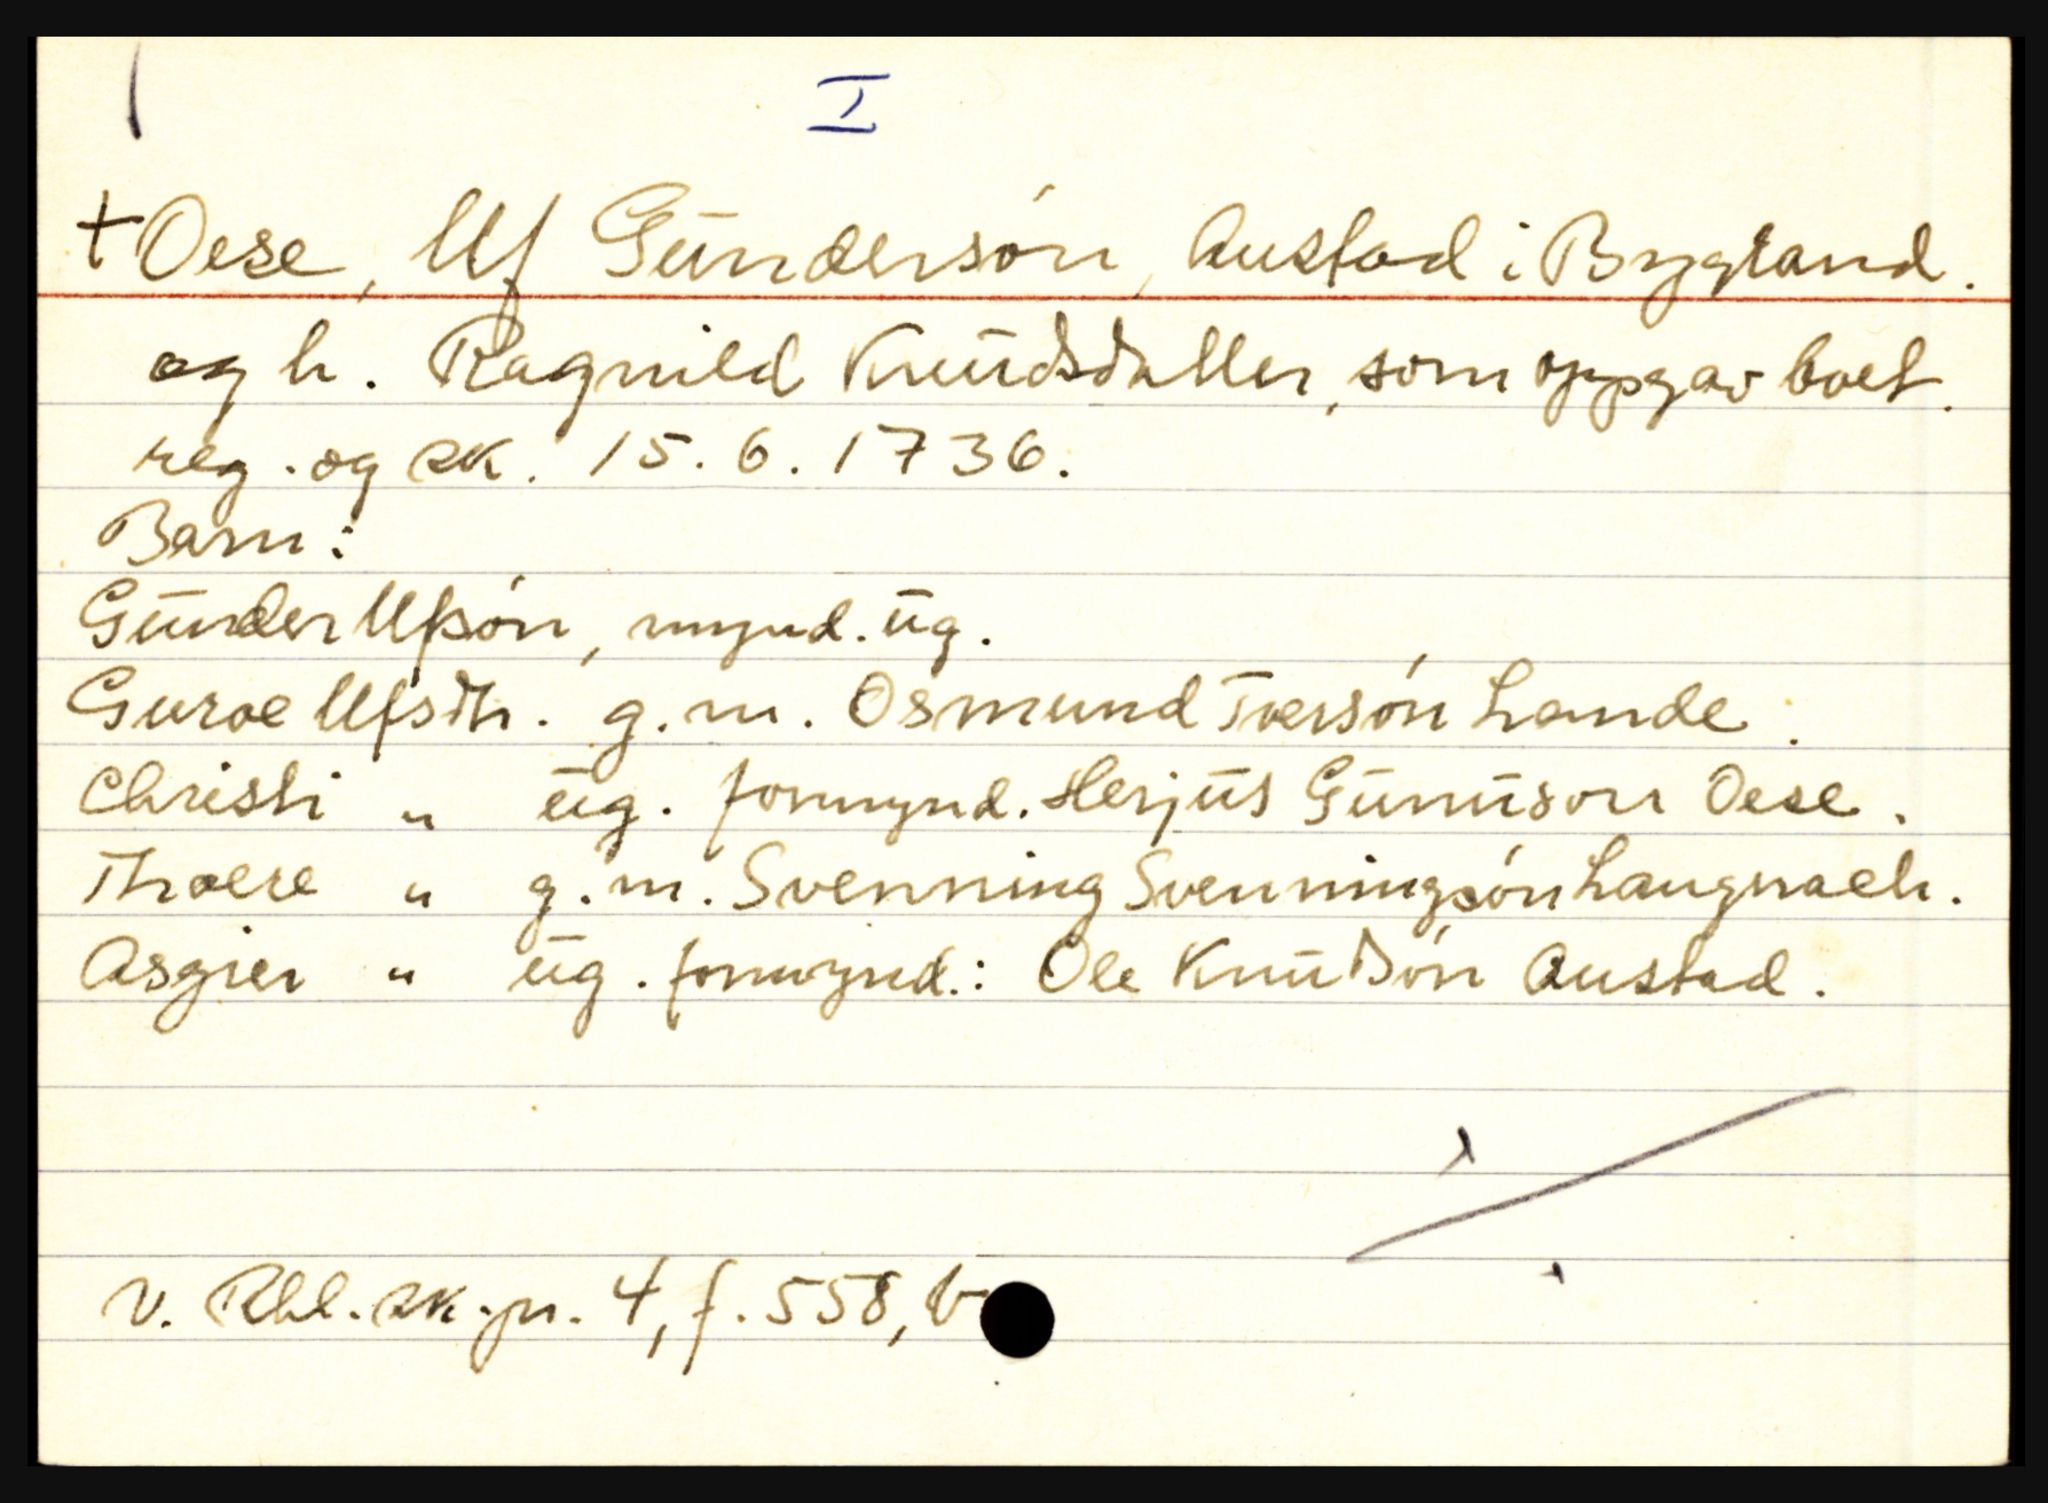 I
+ Oese, Ulf Gundersón, Austad i Bygland.
og h. Ragnild Knudsdatter, som oppgav boet.
reg. og sk. 15.6.1736.
Barn:
Gunder Ulfsón, mynd. ug.
Guroe Ulfsdtr. g.m. Osmund Tversón Lande.
Christi " ug. formynd. Herjus Gunuson Oese.
Thoere " g.m. Svenning Svenningsón Langnaeh.
Asgier " ug. formynd.: Ole Knudsón Austad.
v. Rbl. sk.pr. 4, f. 558, b